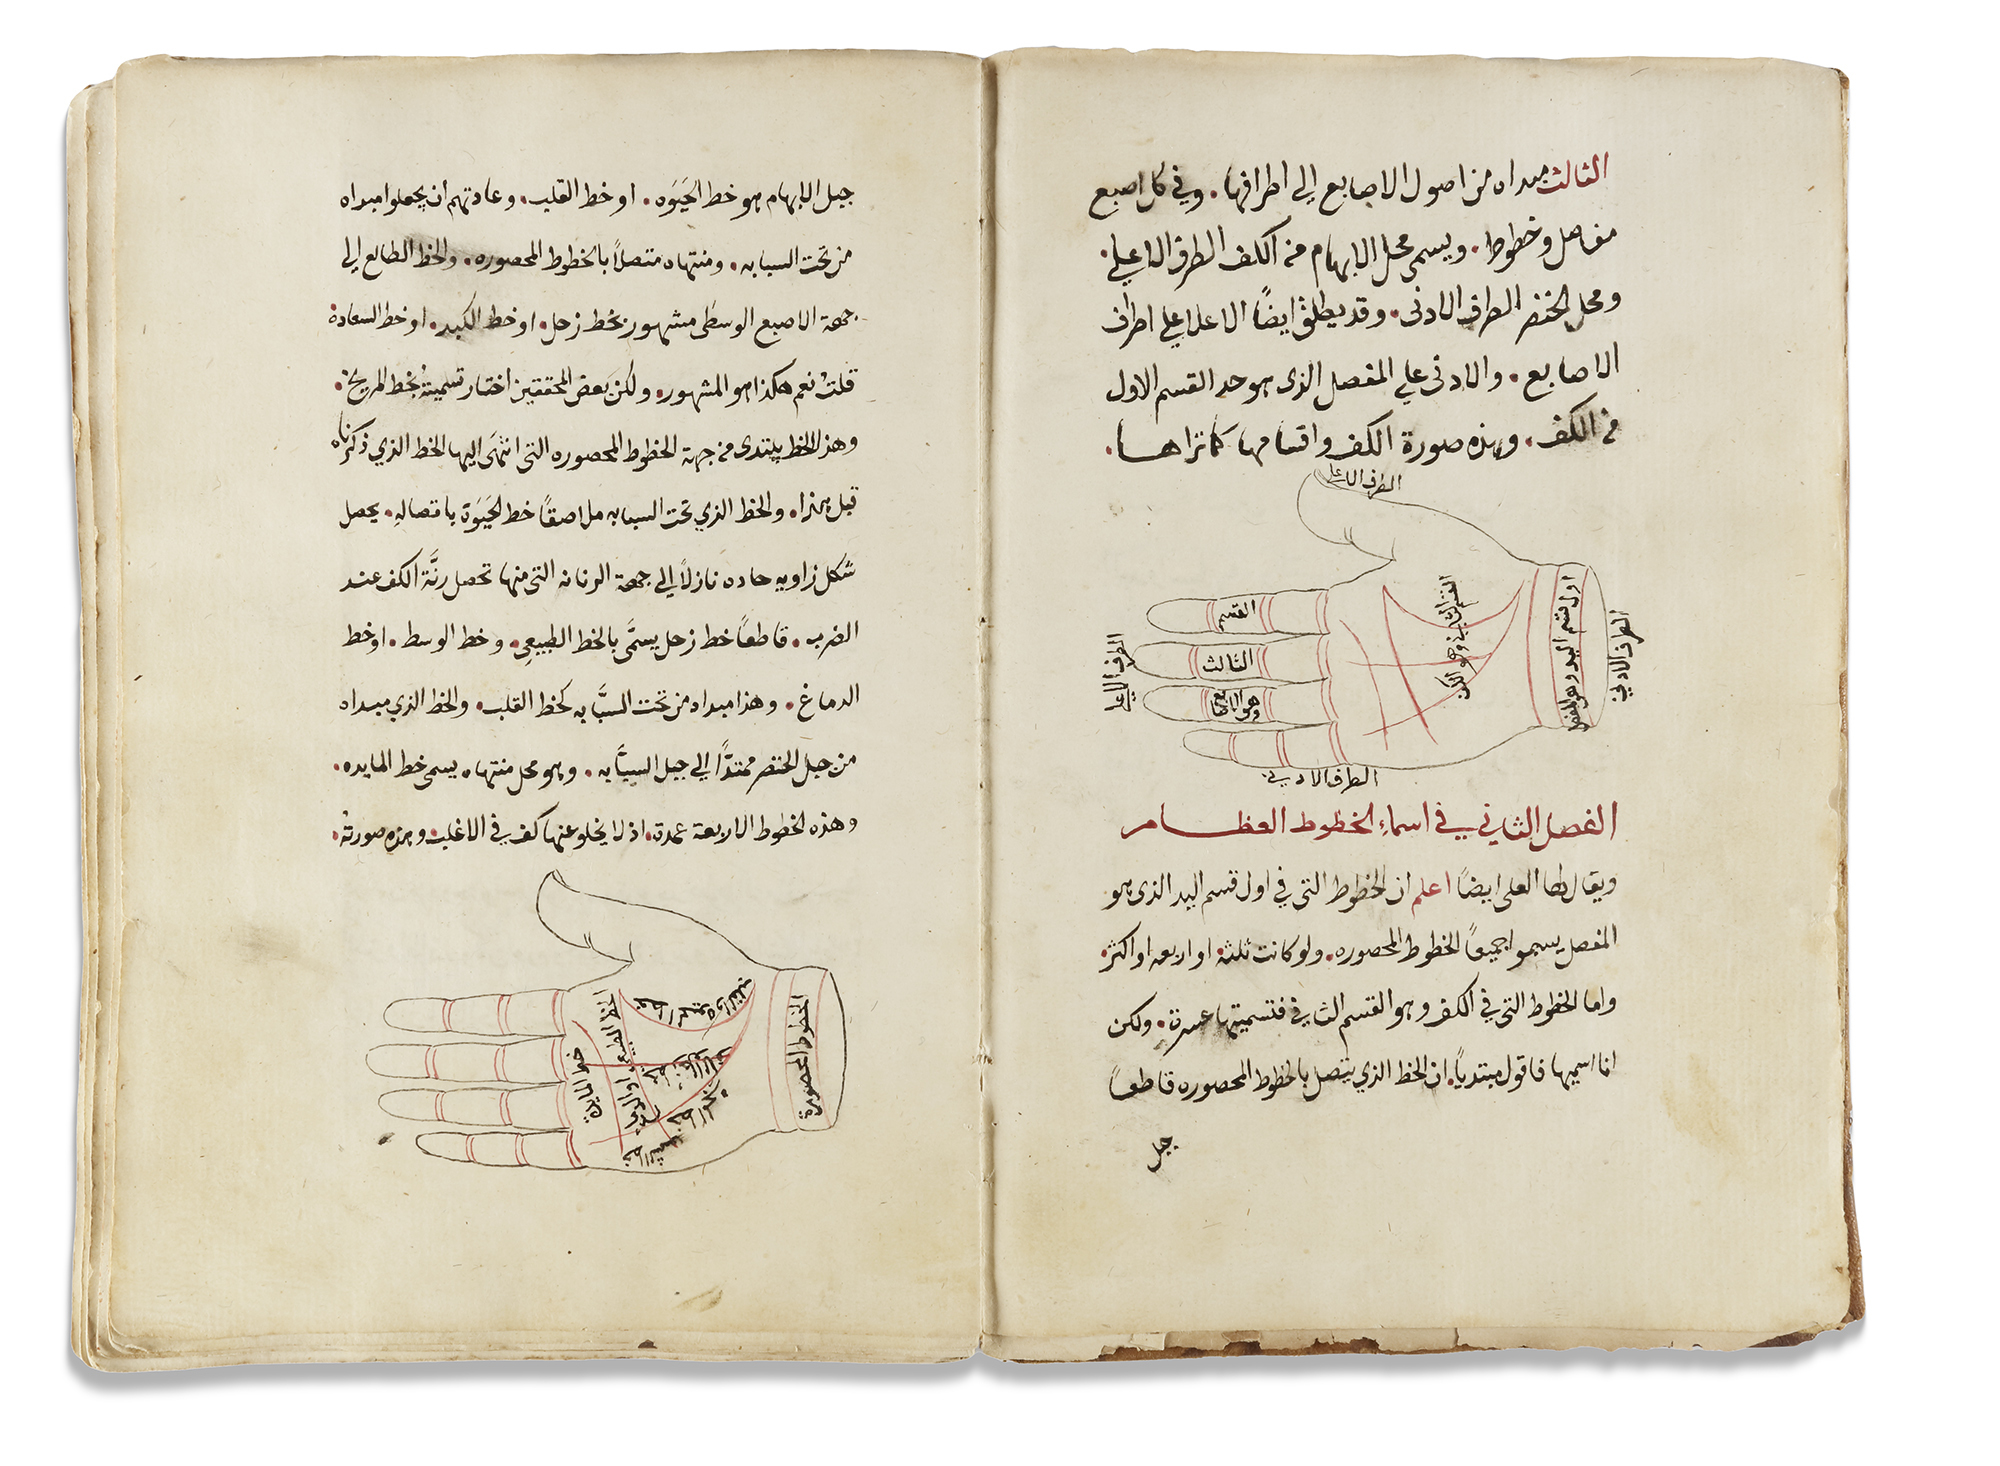 الثالث مبداه من اصول الاصابع الى اطرافها. وفي كل اصبع
مفاصل وخطوط. ويسمى محل الابهام من الكف الطرف الاعلي.
ومحل الخنصر الطرف الادنى. وقد يطلق ايضًا الاعلا علي اطراف
الاصابع. والادنى علي المفصل الذى هو حد القسم الاول
من الكف. وهذه صورة الكف واقسامها كما تراها.
الطرف الاعلي
القسم
الثالث
وهو الاصابع
القسم الثاني وهو الكف
اول قسم اليد وهو المفصل
الطرف الادني
الطرف الاعلي
الطرف الادني
الفصل الثاني في اسماء الخطوط العظام
ويقال لها العلى ايضًا اعلم ان الخطوط التى في اول قسم اليد الذى هو
المفصل يسمو اجميعًا الخطوط المحصوره. ولو كانت ثلثة او اربعه او اكثر.
واما الخطوط التى في الكف وهو القسم الثاني فتسميتها عسرة. ولكن
انا اسميها فاقول مبتديًا. ان الخط الذي يتصل بالخطوط المحصوره قاطعًا
جبل
جبل الابهام هو خط الحَيَوَه. او خط القلب. وعادتهم ان يجعلوا مبداه
من تحت السبابه. ومنتهاه متصلاً بالخطوط المحصوره. والخط الطالع الى
جهة الاصبع الوسطى مشهور بخط زحل. او خط الكبد. او خط السعادة
قلتُ نعم هكذا هو المشهور. ولكن بَعض المحققين اختار تسميتهُ بخط المريخ.
وهذ الخط يبتدى من جهة الخطوط المحصوره التى انتهَى اليها الخط الذي ذكرناه
قبل هذا. والخط الذي تحت السبابه ملاصقًا خط الحَيَوَة باتصالهِ. يحصل
شكل زاويه حاده نازلاً الى جهة الرنانه التى منها تحصل رنَّة الكف عند
الضرب. قاطعًا خط زحل يسمَّى بالخط الطبيعى. وخط الوسط. او خط
الدماغ. وهذا مبداه من تحت السبَّابه كخط القلب. والخط الذي مبداه
من جبل الخنصر ممتدًّا الى جبل السبَّابه. وهو محل منتهاه يسمى خط المايده.
وهذه الخطوط الاربعة عمدة. اذ لا يخلو عنها كف في الاغلب. وهذه صورتهُ.
الخطوط المحصورة
خط المايدة
الخط الطبيعي